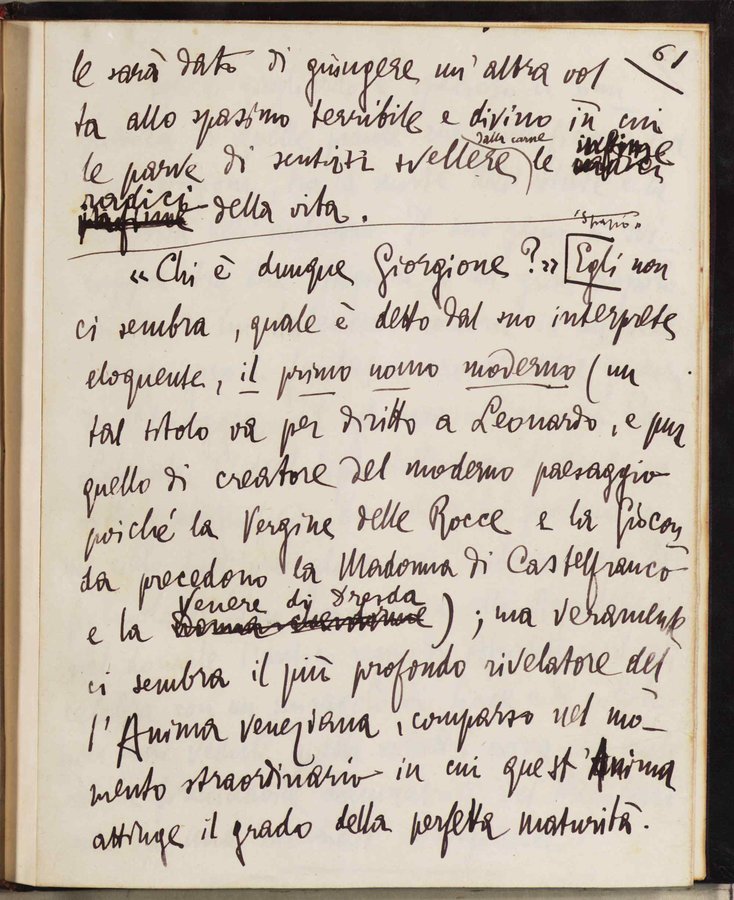 61
le sarà dato di giungere un'altra vol
ta allo spasimo terribile e divino in cui
dalla carne
le parve di sentirsi svellere le infime
radici della vita.
"Spazio"
«Chi è dunque Giorgione?» Egli non
ci sembra, quale è detto dal suo interprete
eloquente, il primo uomo moderno (un
tal titolo va per diritto a Leonardo, e pur
quello di creatore del moderno paesaggio
poiché la Vergine delle Rocce e la Giocon
da precedono la Madonna di Castelfranco
Venere di Dresda
e la ); ma veramente
ci sembra il più profondo rivelatore del
l'Anima veneziana, comparso nel mo-
mento straordinario in cui quest'Anima
attinge il grado della perfetta maturità.